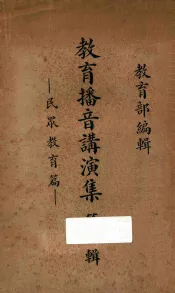 教育部編輯
教育播音講演集 輯
—民眾教育篇—